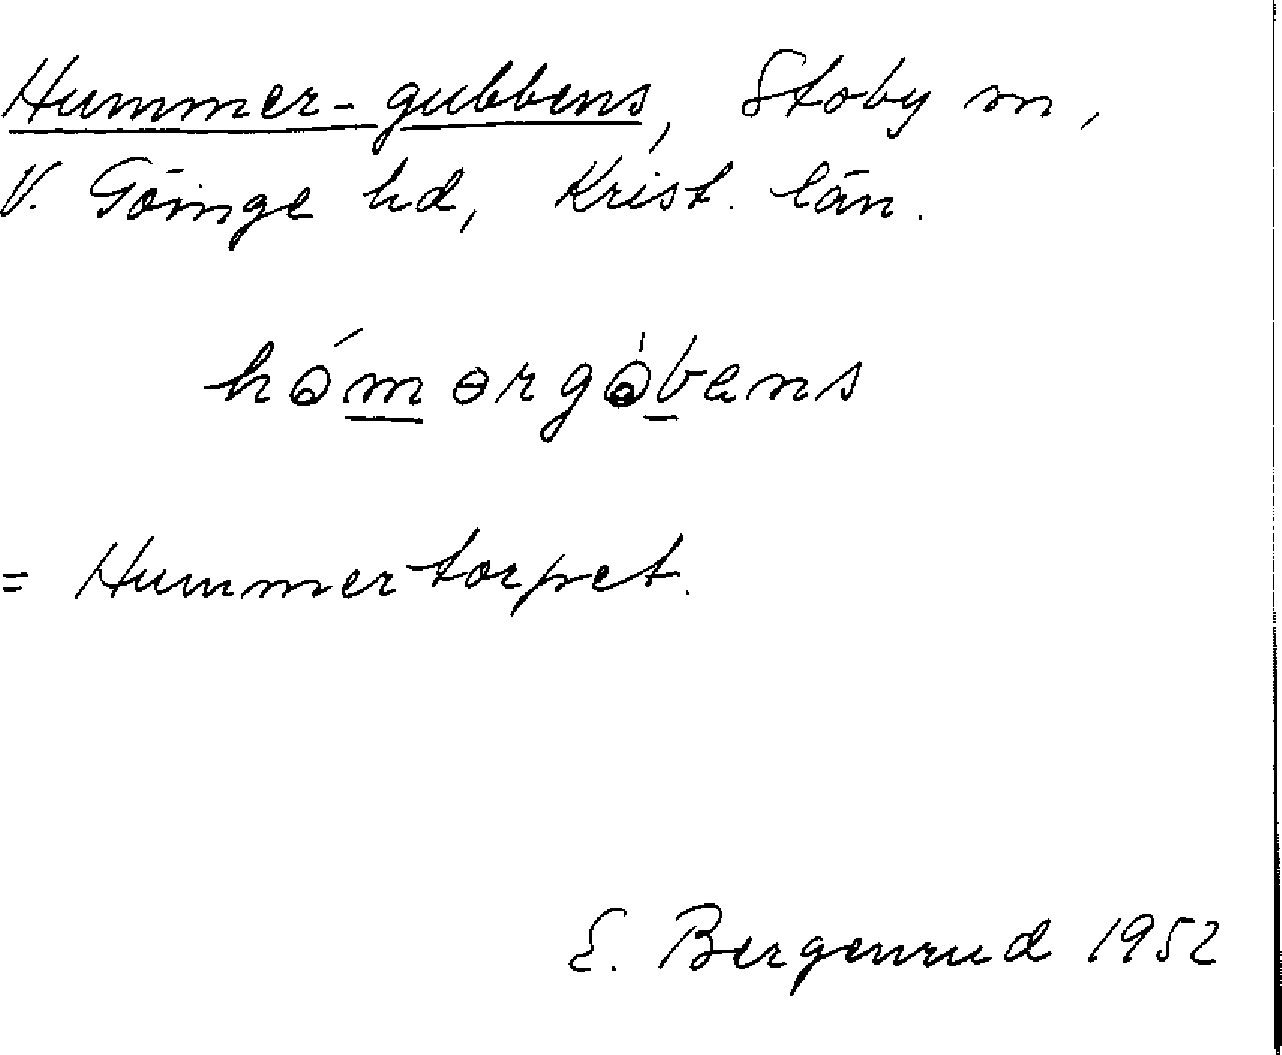 Hummer-gubbens, Stoby sn,
V. Göinge hd, Krist. län.
hómərgòbens
= Hummertorpet.
E. Bergenrud 1952